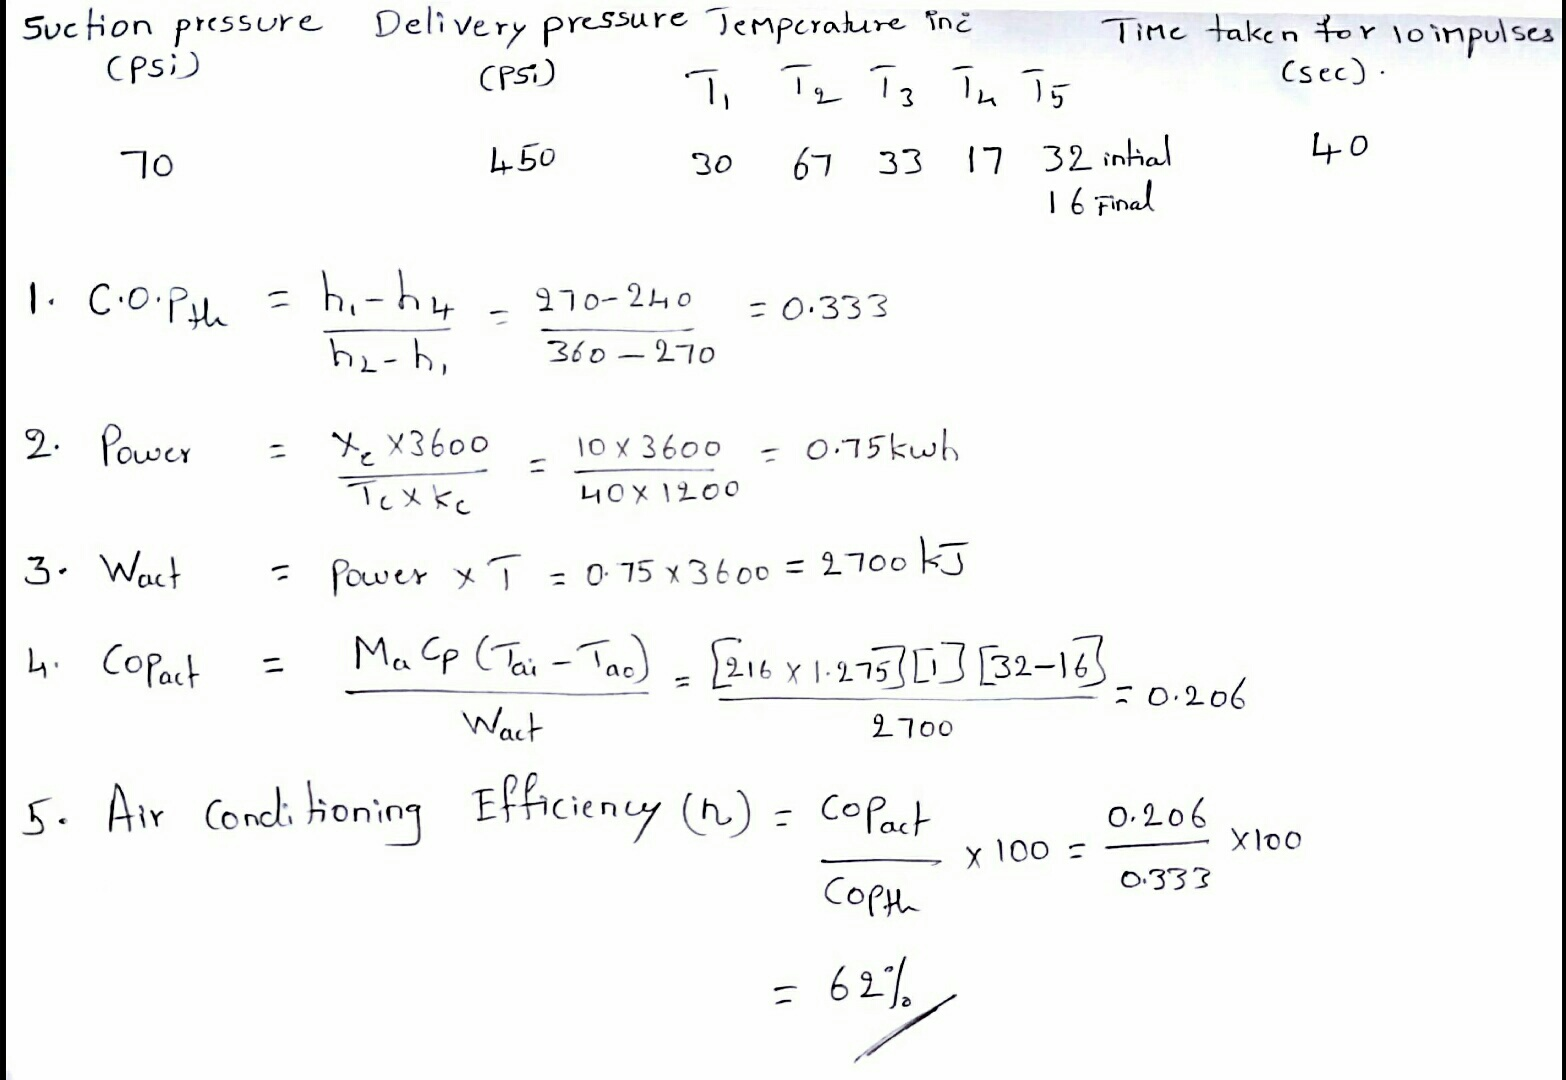 Suction pressure Delivery pressure Temperature in c Time taken for 10 impulses
(Psi) (PSi) T1 T2 T3 T4 T5 (sec).
70 450 30 67 33 17 32 intial 40
16 Final
1. C.O.Pth = h1-h4 / h2-h1 = 270-240 / 360-270 = 0.333
2. Power = Xc X3600 / Tc x Kc = 10 x 3600 / 40 X 1200 = 0.75kwh
3. Wact = Power x T = 0.75 x 3600 = 2700 kJ
4. COPact = Ma Cp (Tai - Tao) / Wact = [216 x 1.275] [1] [32-16] / 2700 = 0.206
5. Air Conditioning Efficiency (n) = COPact / COPth x 100 = 0.206 / 0.333 X100
= 62%